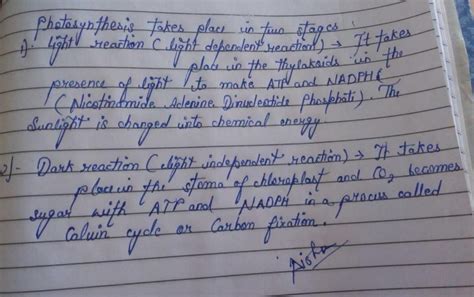 Photosynthesis takes place in two stages :
1). Light reaction (light dependent reaction) → It takes
place in the thylakoids in the
presence of light to make ATP and NADPH
(Nicotinamide Adenine Dinucleotide Phosphate). The
Sunlight is changed into chemical energy.
2)- Dark reaction (light independent reaction) → It takes
place in the stoma of chloroplast and CO2 becomes
sugar with ATP and NADPH in a process called
Calvin cycle or Carbon fixation.